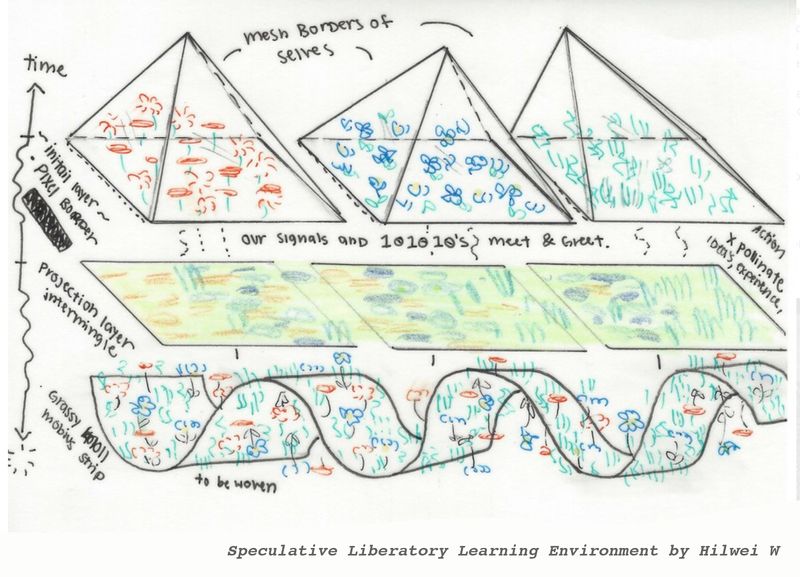 mesh Borders of
selves
time
initail layer ~
• Pixel Border
our signals and 101010's } meet & Greet.
Action
X pollinate
ideas, experience,
Projection layer
intermingle
Grassy
mobius strip
to be woven
Speculative Liberatory Learning Environment by Hilwei W